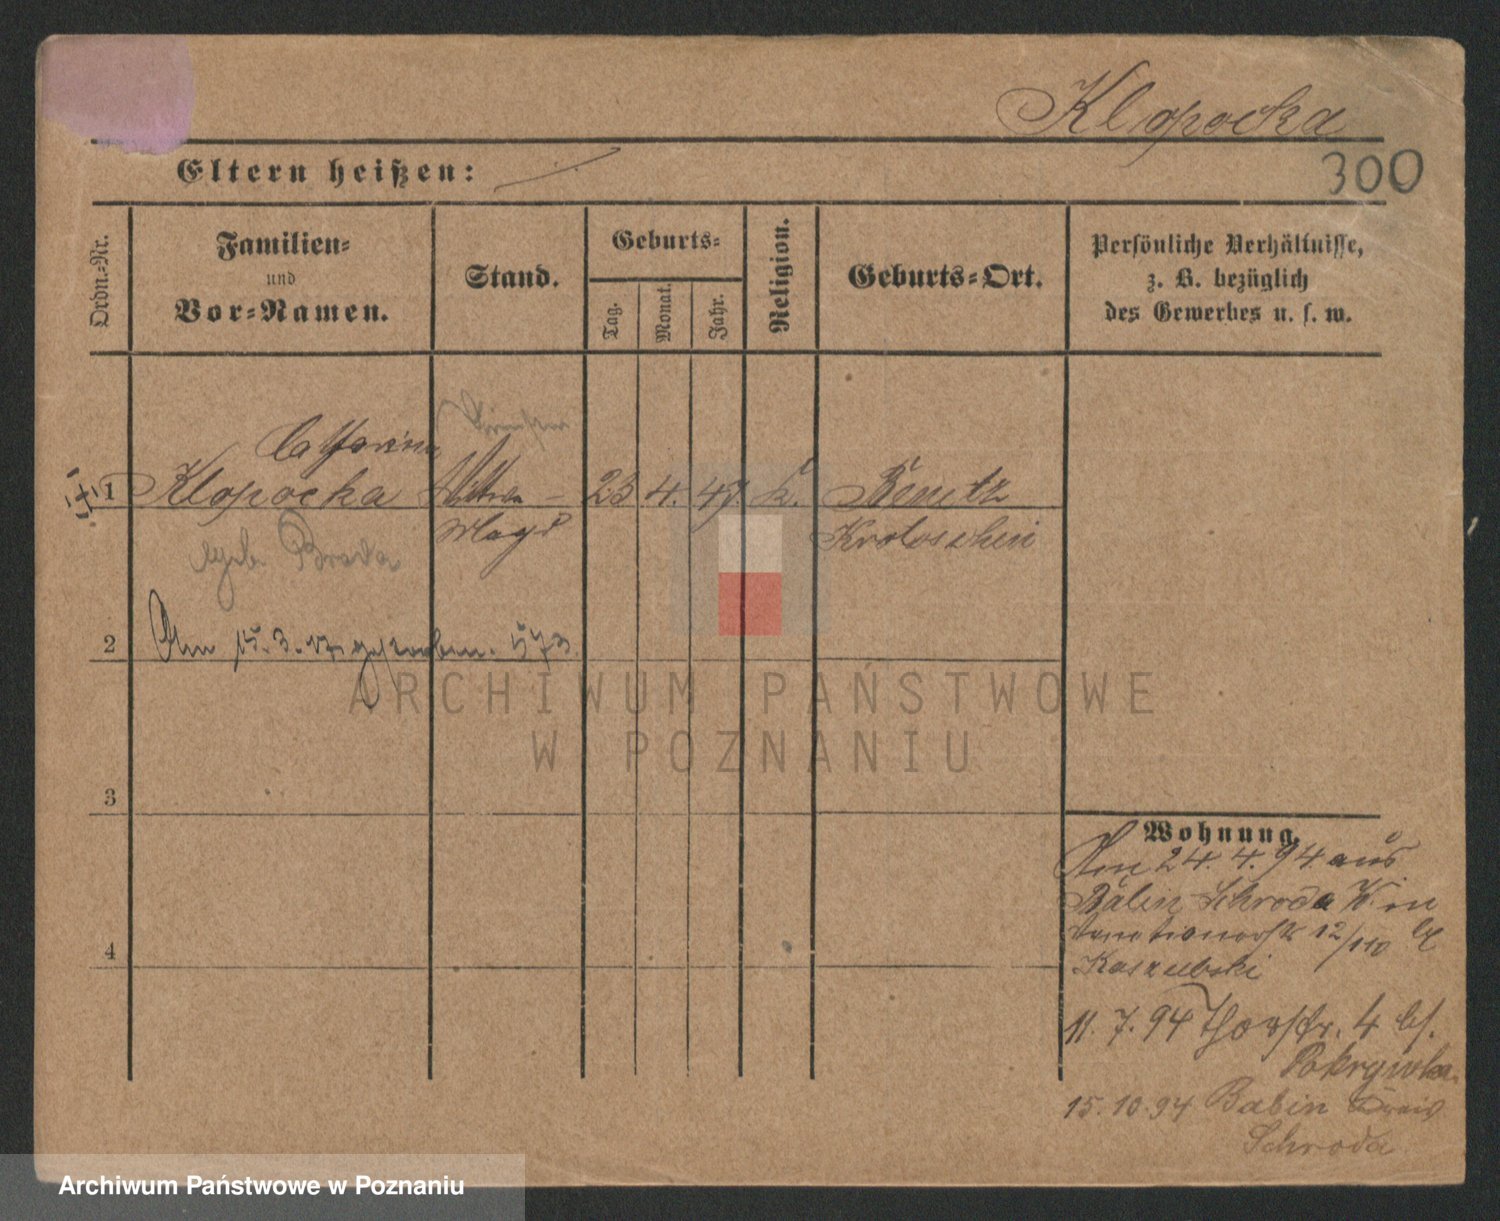 Klopocka
300
Eltern heißen:
Ordn.-Nr.
Familien-
und
Vor-Namen.
Stand.
Geburts-
Tag.
Monat.
Jahr.
Religion.
Geburts-Ort.
Persönliche Verhältnisse,
z. B. bezüglich
des Gewerbes u. s. w.
Catharina
1 Klopocka 23 4. 47. k. Benitz
Magd Krotoschin
geb. Broda
2 Am 15. 3. 17 gestorben. 573.
3
4
Wohnung.
Am 24. 4. 94. aus
Babin Schroda K. in
12/110
Kaszubski
11. 7. 94 Thorstr. 4 bf.
Pokrywka
15. 10. 94 Babin Kreis
Schroda
ARCHIWUM PAŃSTWOWE
W POZNANIU
Archiwum Państwowe w Poznaniu